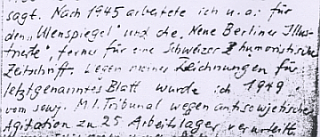 sagt. Nach 1945 arbeitete ich u.a. für
den „Ulenspiegel" und die „Neue Berliner Illus-
trierte", ferner für eine Schweizer humoristische
Zeitschrift. Wegen meiner Zeichnungen für
letztgenanntes Blatt wurde ich 1949
vom sowj. M.I. Tribunal wegen antisowjetischer
Agitation zu 25 Arbeitslager verurteilt